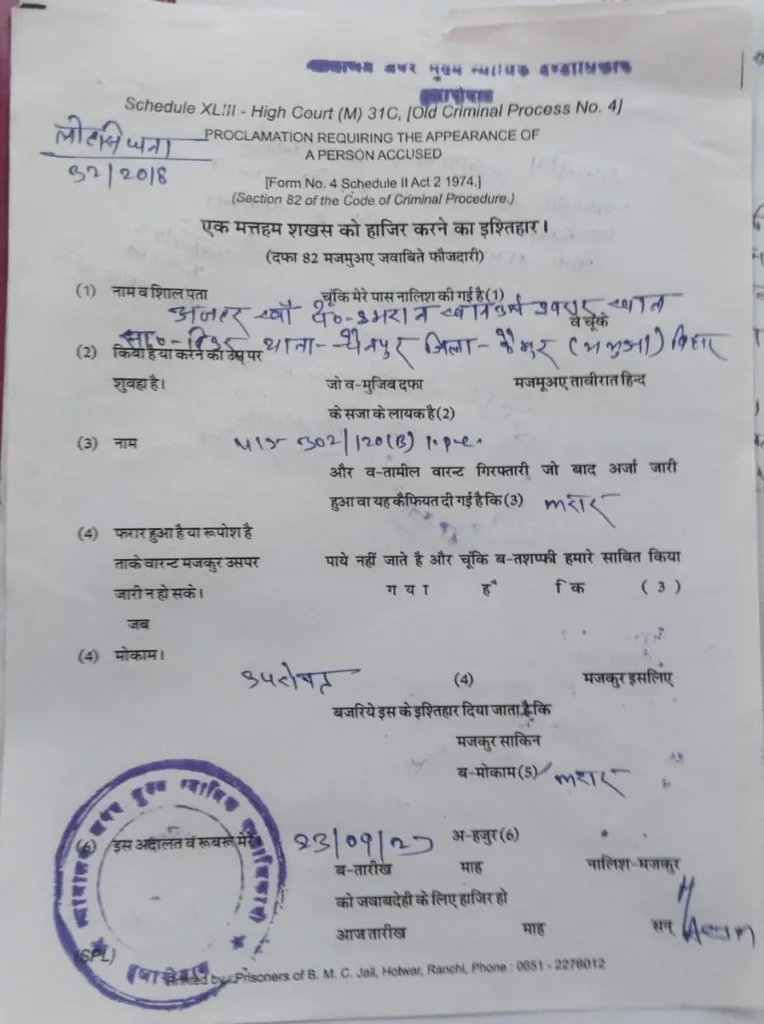 न्यायालय अपर मुख्य न्यायिक दण्डाधिकारी
Schedule XLIII - High Court (M) 31C, [Old Criminal Process No. 4]
PROCLAMATION REQUIRING THE APPEARANCE OF
A PERSON ACCUSED
32/2018
[Form No. 4 Schedule II Act 2 1974.]
(Section 82 of the Code of Criminal Procedure.)
एक मत्तहम शखस को हाजिर करने का इश्तिहार।
(दफा 82 मजमुअए जवाबिते फौजदारी)
(1) नाम व शिाल पता चूंकि मेरे पास नालिश की गई है (1)
व चूंके
थाना- चैनपुर जिला- कैमुर (भभुआ) बिहार
(2) किया है या करने का उस पर
शुवहा है। जो व-मुजिब दफा मजमूअए तावीरात हिन्द
के सजा के लायक है (2)
(3) नाम 302/120(B) I.P.C.
और व-तामील वारन्ट गिरफ्तारी जो बाद अर्जा जारी
हुआ वा यह कैफियत दी गई है कि (3)
(4) फरार हुआ है या रूपोश है
ताके वारन्ट मजकुर उसपर पाये नहीं जाते है और चूंकि ब-तशफ्फी हमारे साबित किया
जारी न हो सके। ग य ा ह ै ि क ( 3 )
जब
(4) मोकाम।
उपरोक्त (4) मजकुर इसलिए
बजरिये इस के इश्तिहार दिया जाता है कि
मजकुर साकिन
ब-मोकाम (5)
(6) इस अदालत व रूबरू मेरे 23/09/23 अ-हजुर (6)
ब-तारीख माह नालिश-मजकुर
को जवाबदेही के लिए हाजिर हो
आज तारीख माह सन्
(SPL)
Printed by : Prisoners of B. M. C. Jail, Hotwar, Ranchi, Phone : 0651 - 2276012